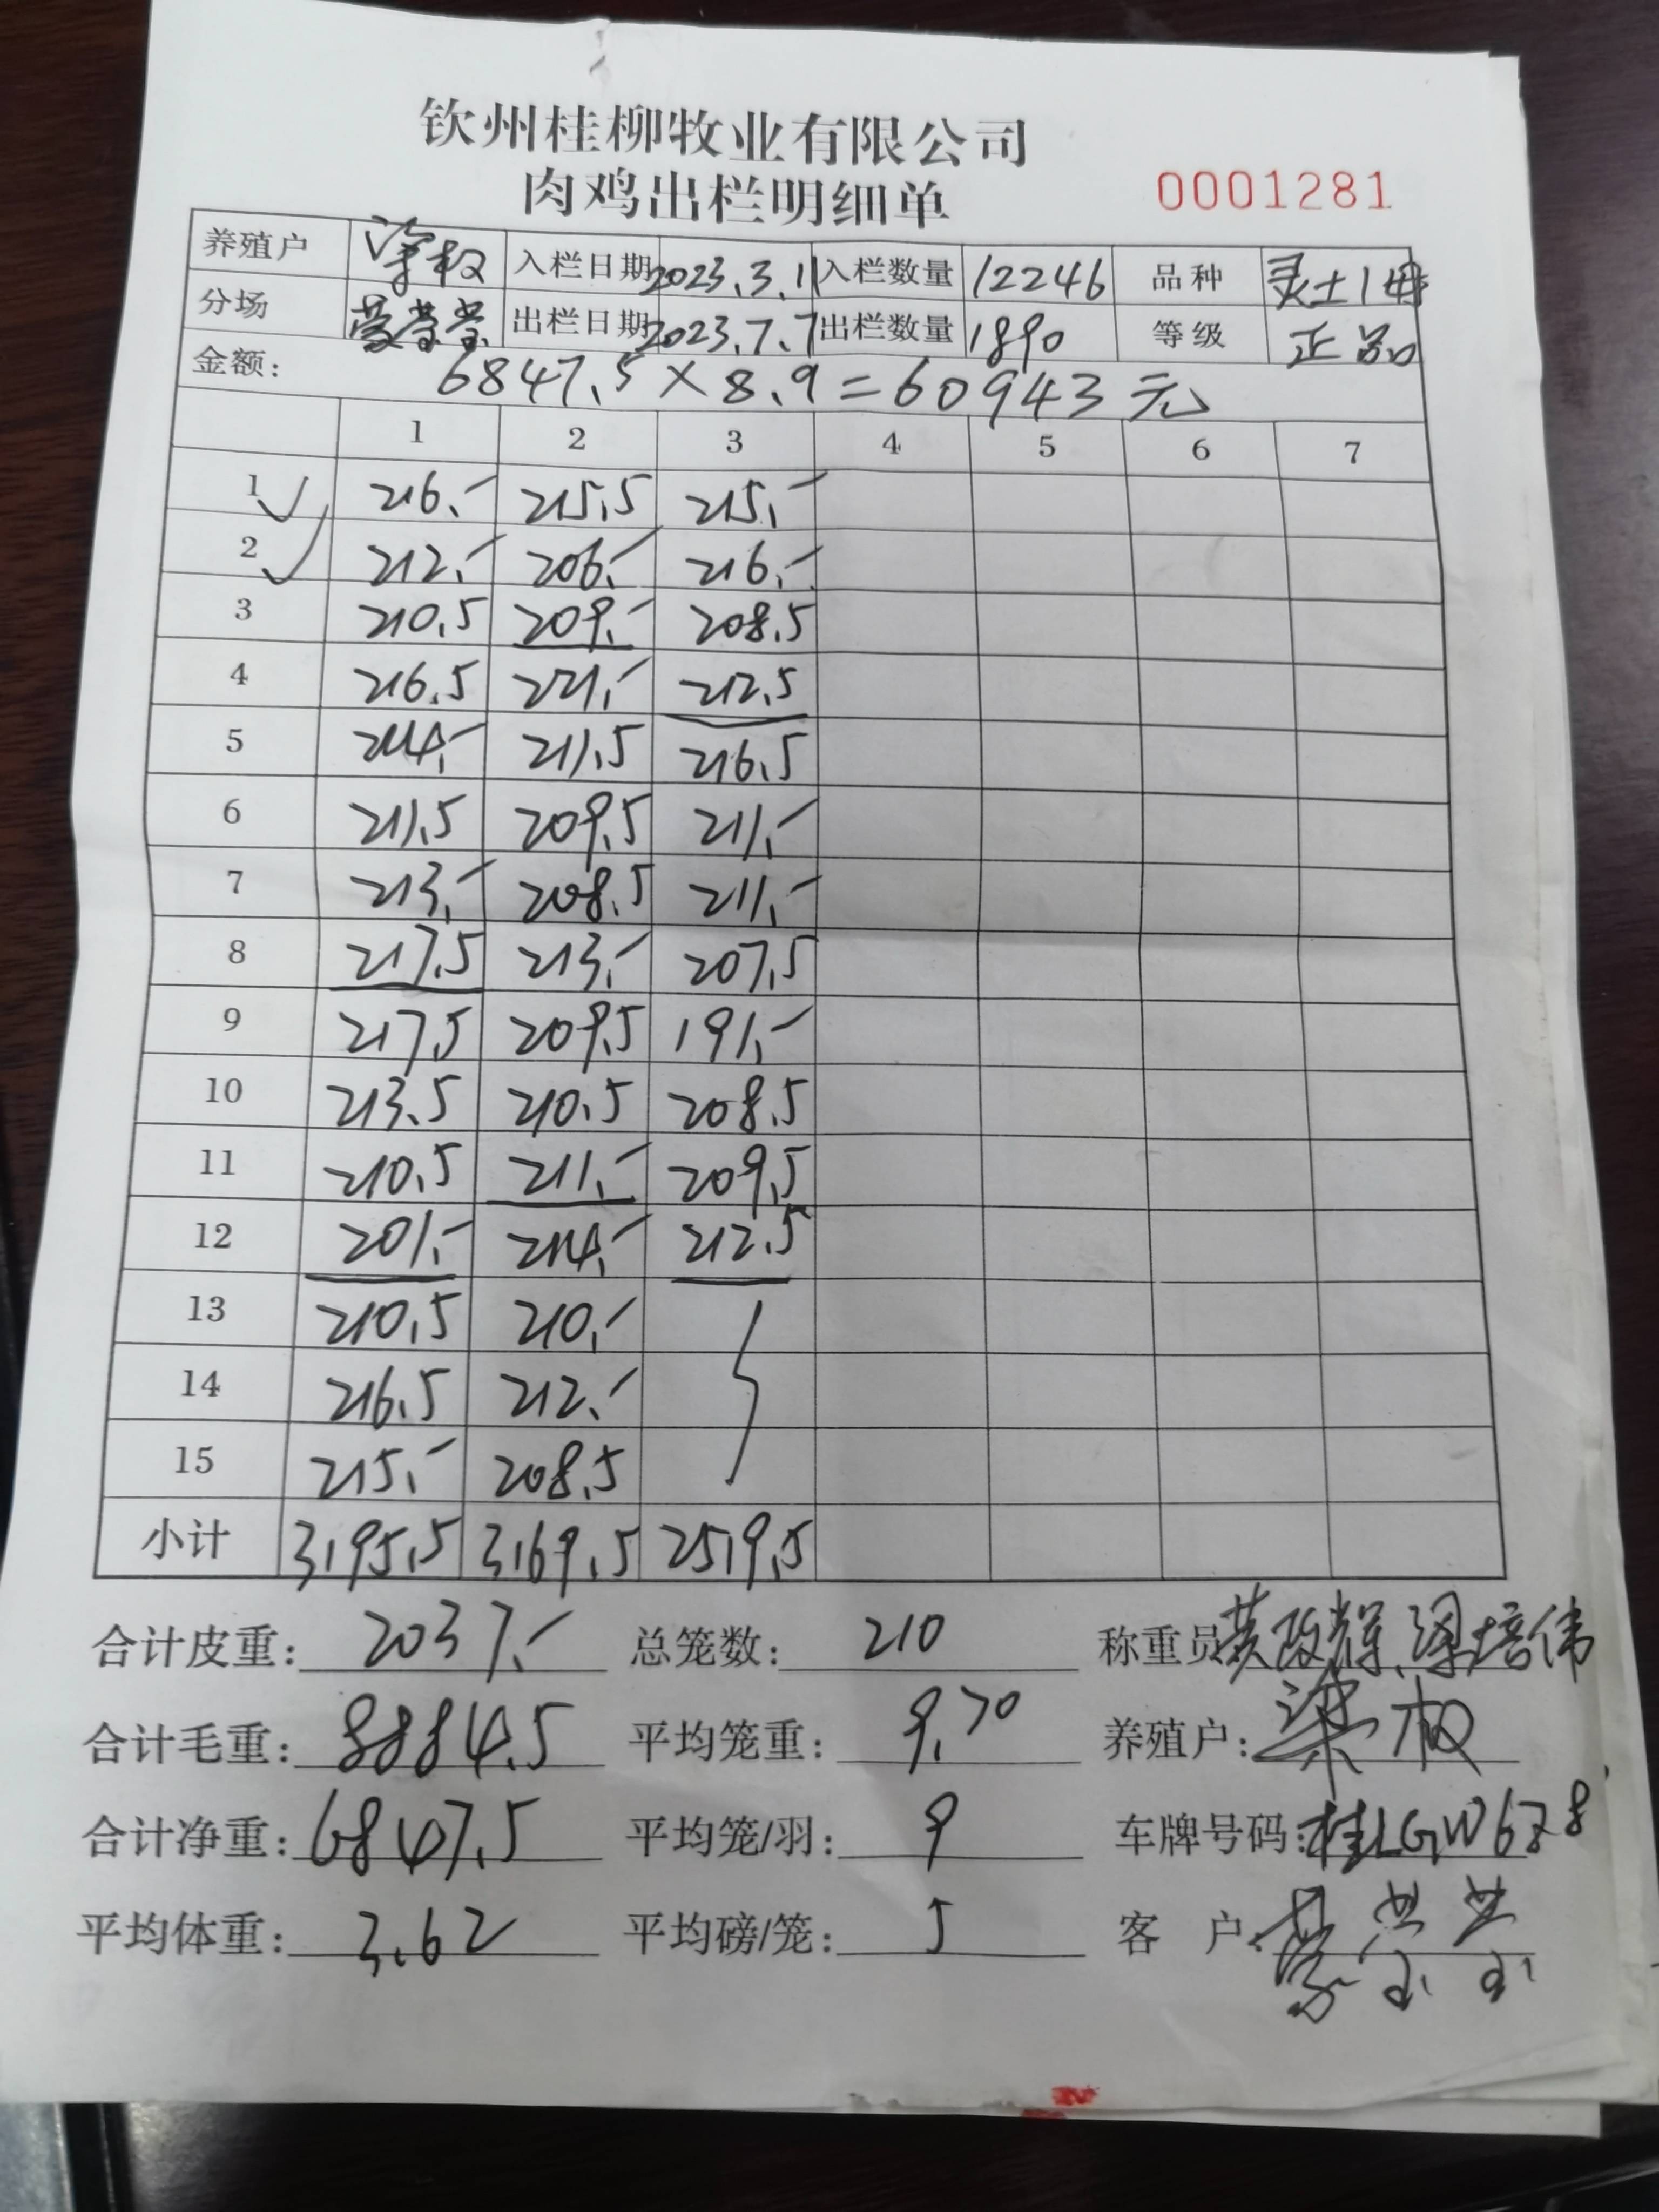 钦州桂柳牧业有限公司
肉鸡出栏明细单 0001281
养殖户 入栏日期 2023.3.11 入栏数量 12246 品种 灵土1母
分场 出栏日期 2023.7.7 出栏数量 1890 等级 正品
金额: 6847.5×8.9=60943元
1 2 3 4 5 6 7
1 216.- 215.5 215.-
2 212.- 206.- 216.-
3 210.5 209.- 208.5
4 216.5 221.- 212.5
5 214.- 211.5 216.5
6 211.5 209.5 211.-
7 213.- 208.5 211.-
8 217.5 213.- 207.5
9 217.5 209.5 191.-
10 213.5 210.5 208.5
11 210.5 211.- 209.5
12 201.- 214.- 212.5
13 210.5 210.-
14 216.5 212.-
15 215.- 208.5
小计 3195.5 3169.5 2519.5
合计皮重: 2037.- 总笼数: 210 称重员 黄政辉、梁培伟
合计毛重: 8884.5 平均笼重: 9.70 养殖户: 梁权
合计净重: 6847.5 平均笼/羽: 9 车牌号码: 桂LGW678
平均体重: 3.62 平均磅/笼: 5 客户: